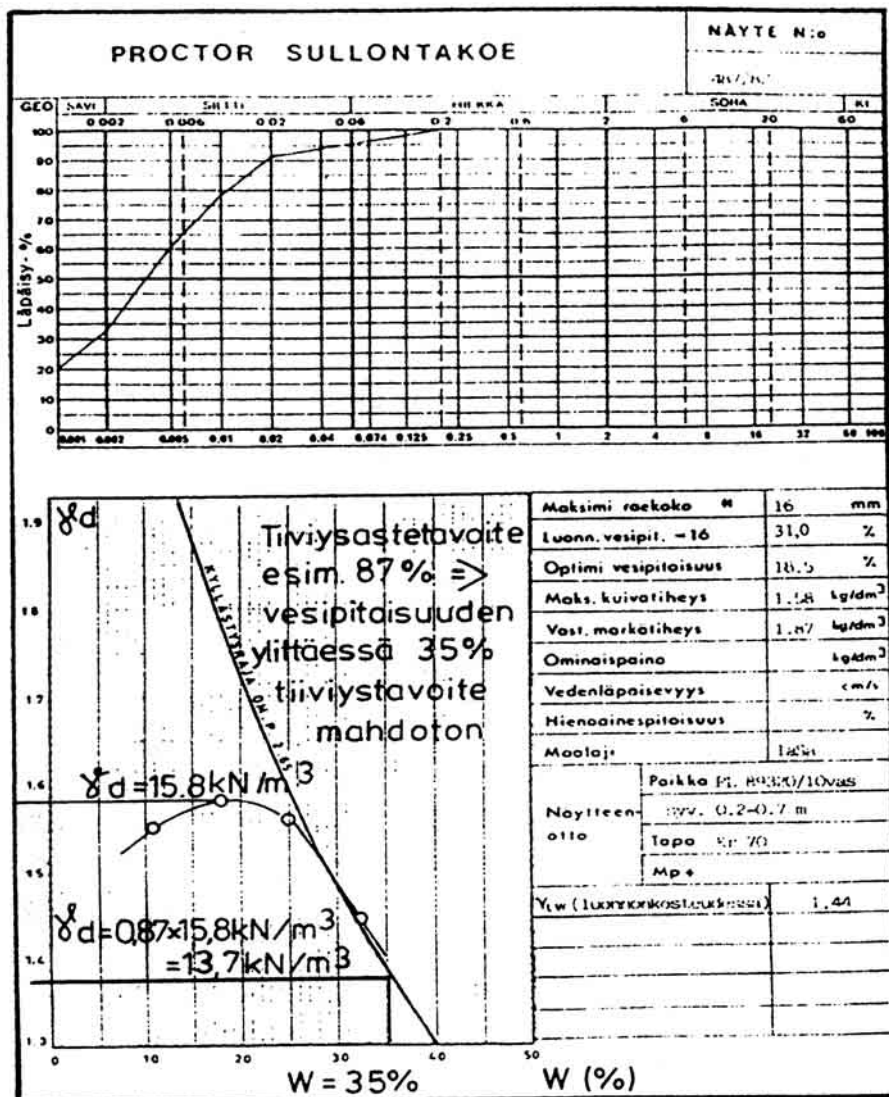 PROCTOR SULLONTAKOE
NÄYTE N:o
GEO SAVI SILTTI HIEKKA SORA KI
0.002 0.006 0.02 0.06 0.2 0.6 2 6 20 60
Läpäisy-%
100
90
80
70
60
50
40
30
20
10
0
0.001 0.002 0.005 0.01 0.02 0.04 0.074 0.125 0.25 0.5 1 2 4 8 16 32 60 100
γd
1.9
1.8
1.7
1.6
1.5
1.4
1.3
KYLLÄSTYSRAJA
Tiiviysastetavoite
esim. 87% =>
vesipitaisuuden
ylittäessä 35%
tiiviystavoite
mahdoton
γd=15.8kN/m³
γd=0,87×15,8kN/m³
=13,7kN/m³
0 10 20 30 40 50
W = 35% W (%)
Maksimi raekoko 16 mm
Luonn. vesipit. -16 31,0 %
Optimi vesipitoisuus 18.5 %
Maks. kuivatiheys 1.58 kg/dm³
Vast. märkätiheys 1.87 kg/dm³
Ominaispaino kg/dm³
Vedenläpäisevyys cm/s
Hienoainespitoisuus %
Maalaji laSa
Näytteen-
otto
Paikka PL 89320/10vas
syv. 0.2-0.7 m
Tapa Kr 70
Mp+
(luonnonkosteudessa) 1.44